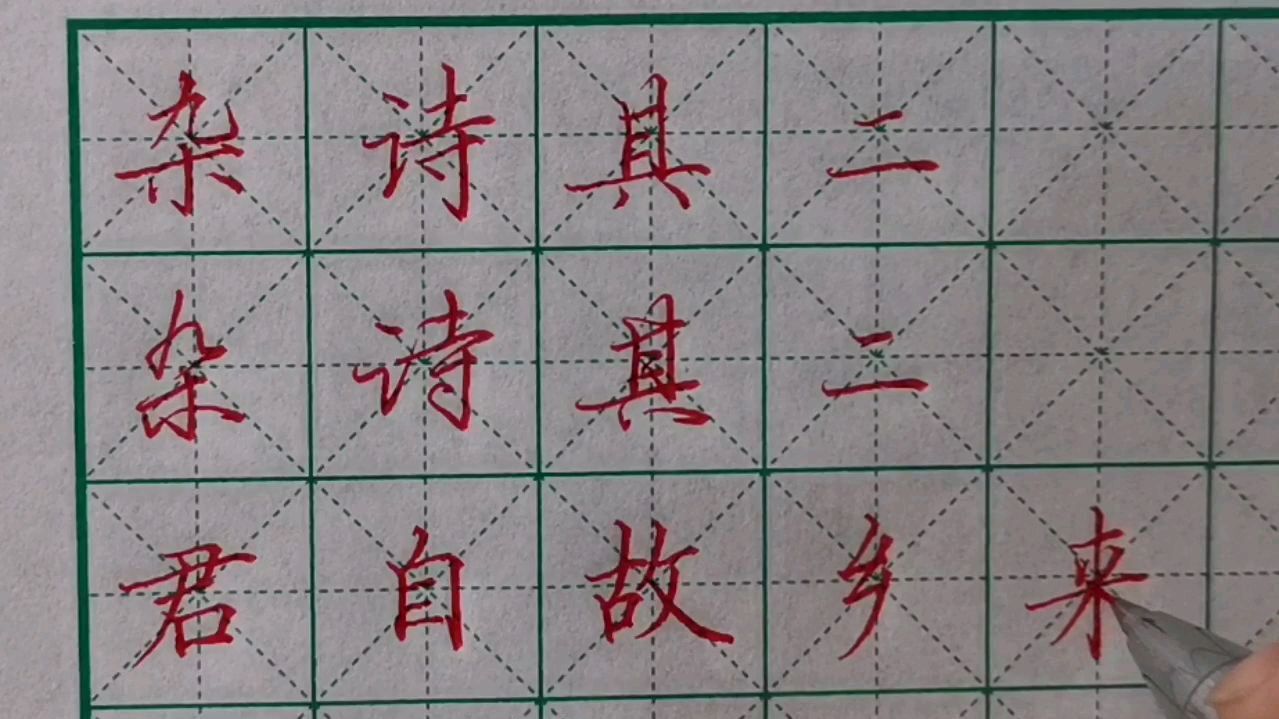 杂诗其二
杂诗其二
君自故乡来